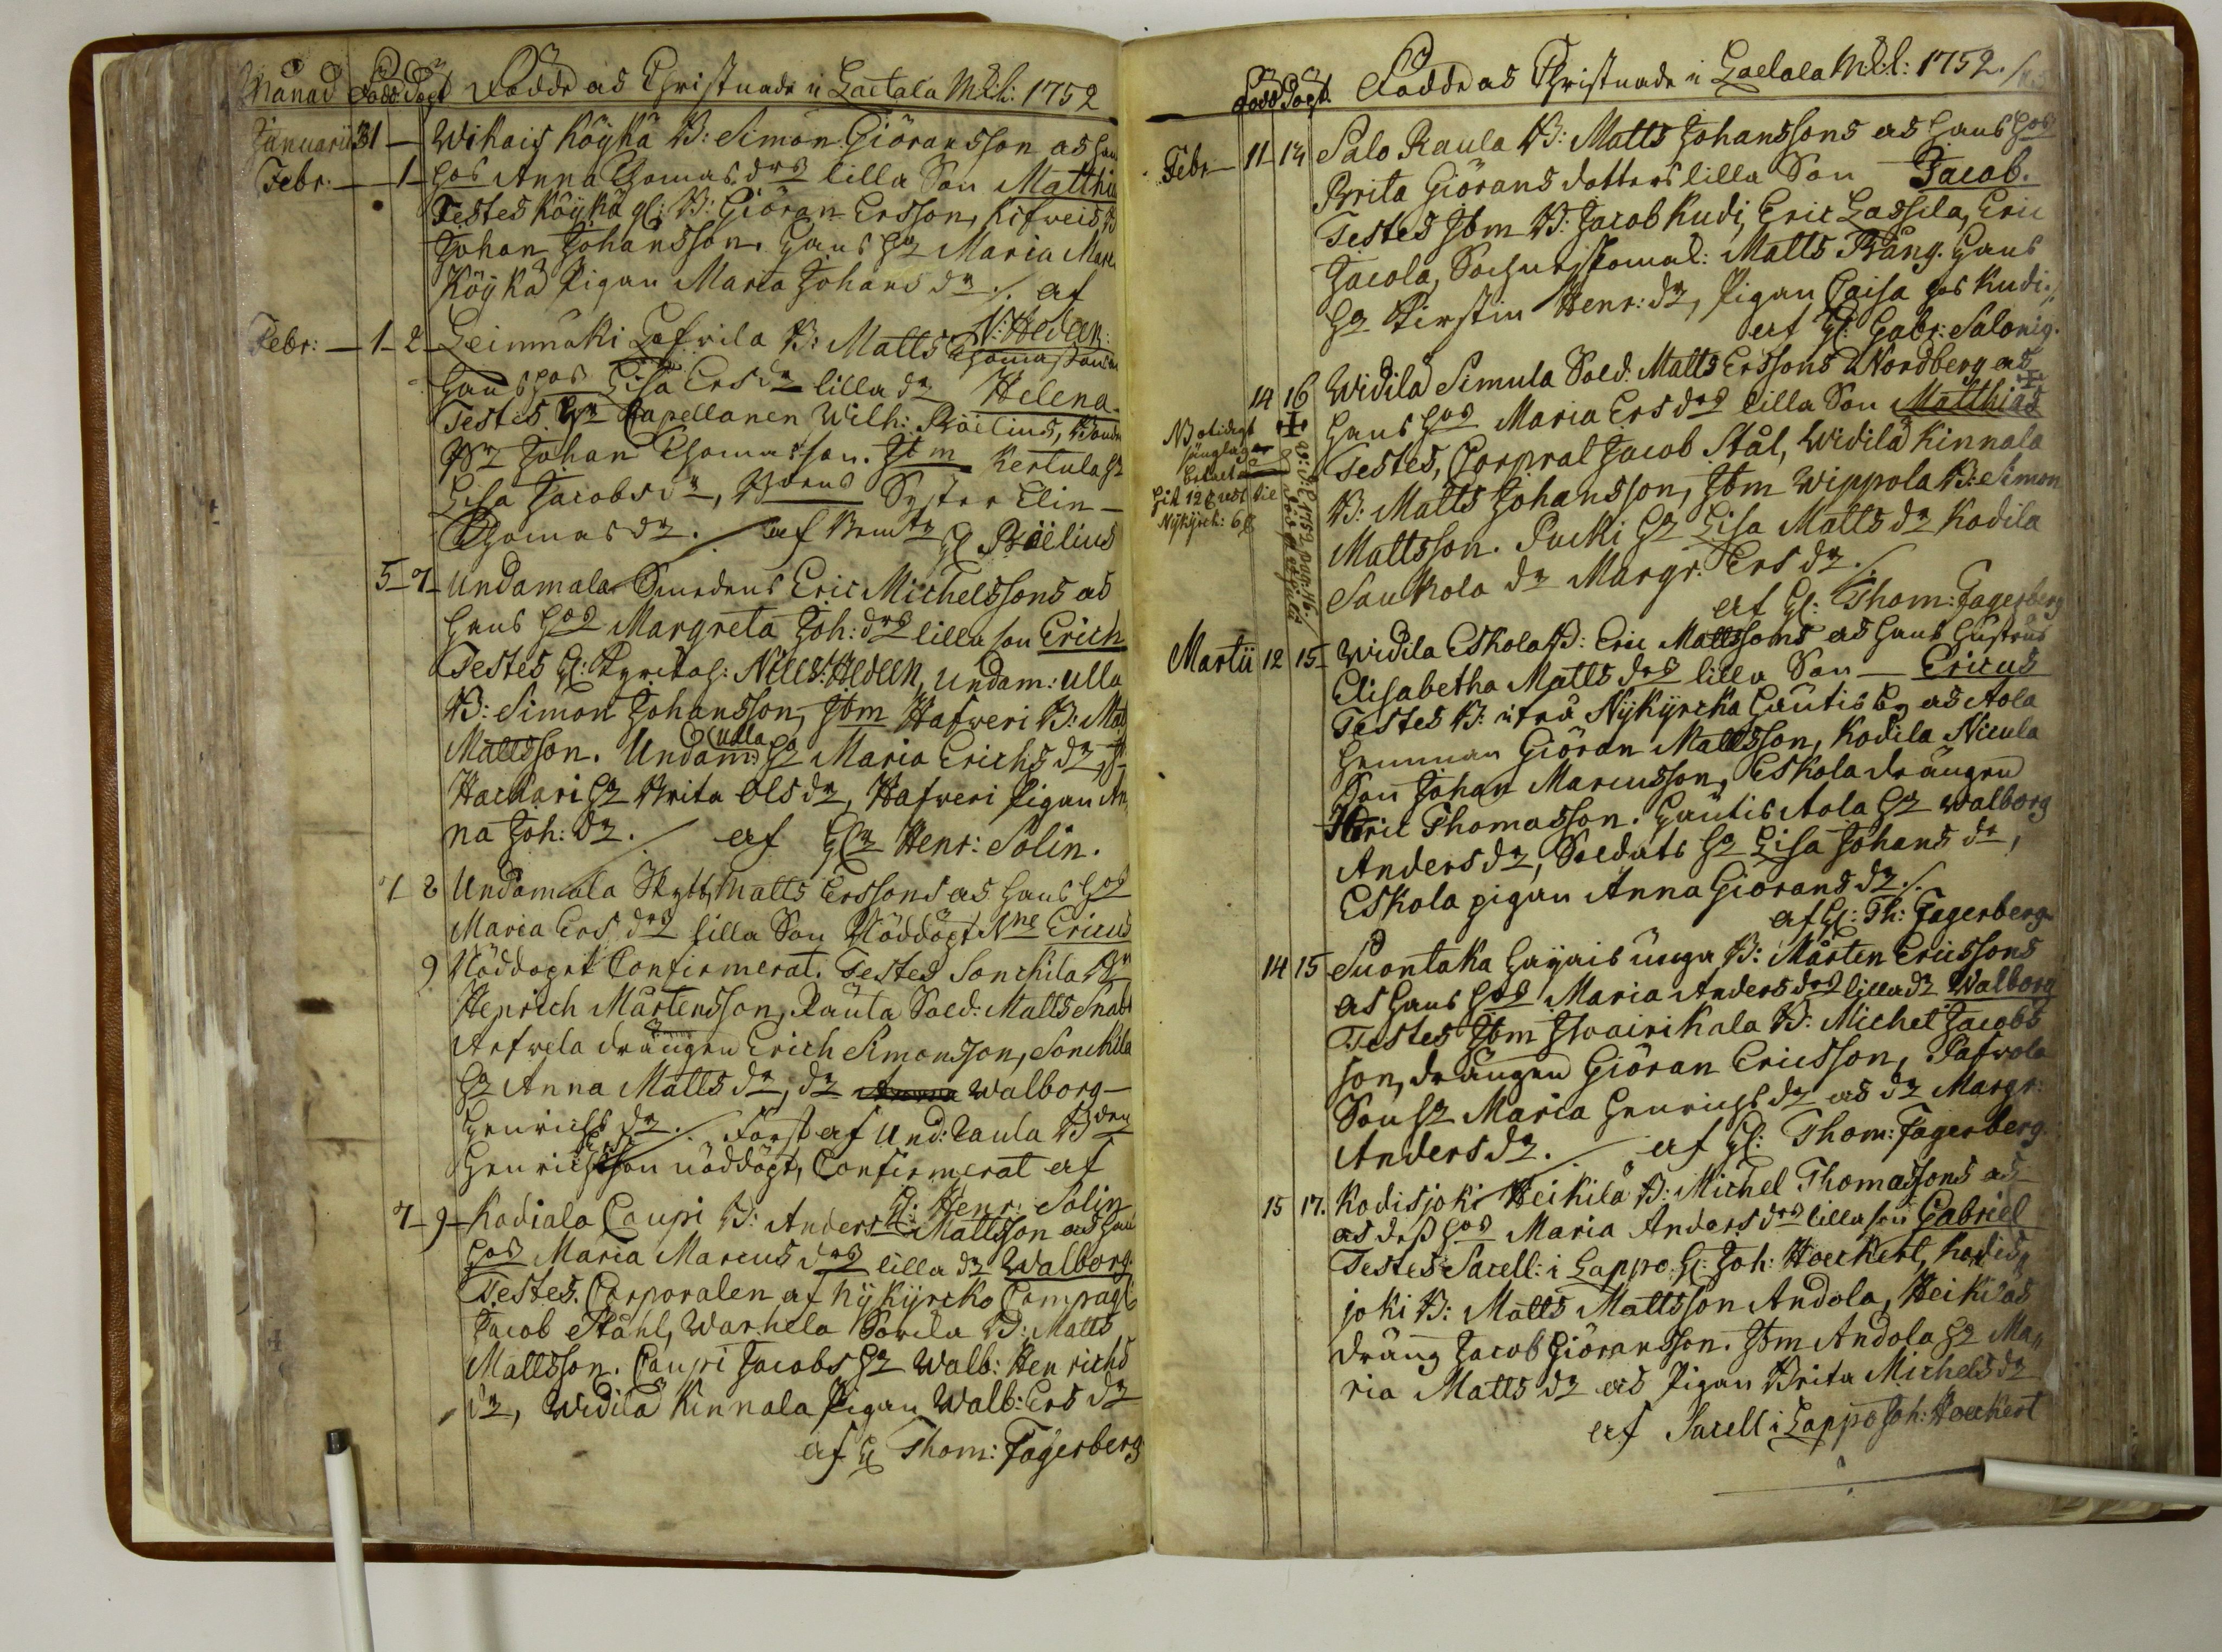 Månad Född Döpt Födde och Christnade i Laetala M:k: 1752
Januarii 31 — Wihais Köykä B: Simon Giöransson och hans
Febr: — 1 — hos Anna Thomas drs lilla Son Matthias
Testes Köykä gl: B: Giöran Ersson, Kifweis B
Johan Johansson. Hans ha Maria Marc
Köykä Pigan Maria Johans dr ./. af
N: Hedeen
Febr: — 1 — 2 Leinmäki Lafvila B: Matts Thomassons
hans hos Lisa Ers dr lilla dr Helena.
Testes. Hr Capellanen Wilh: Pröilius, Bonden
Johan Thomasson. Ibm Kertula ha
Lisa Jacobs dr, Syster Elin —
Thomas dr. ./. af
5 — 7 — Undamala Smedens Eric Michelssons och
hans hos Margreta Joh: drs lilla son Erich
Testes Nils: Hedeen, Undam: ulla
B: Simon Johansson, Ibm Hafweri B: Mat
Mattsson. Undam: ulla ha Maria Erichs dr,
Hackari ha Brita Ols dr, Hafweri Pigan An
na Joh: dr. ./. af Hr Henr: Solin.
7 8 Undamala Skytt, Matts Erssons och hans hos
Maria Ers drs lilla Son Nöddöpt Nne Ericus
9 Nöddopet Confirmerat. Testes Sonckila
Henrich Mårtensson, Rauta Sold: Matts Snabb
Arfwela drängen Erich Simonsson, Sonckila
ha Anna Matts dr, dr Walborg —
Henrichs dr. ./. Först af Und: Caula
Henrichsson nöddöpt, Confirmerat af
H: Henr: Solin
7 — 9 — Kodiala Caupi B: Anders Mattsson och hans
hos Maria Marcus drs lilla dr Walborg.
Testes. Corporalen af Nykyrcko Compagn
Jacob Ståhl, Warhela Sorila B: Matts
Mattsson. Caupi Jacobs ha Walb: Henrichs
dr, Widilä Kinnala Pigan Walb: Ers dr
af H Thom: Fagerberg
Född Döpt. Födde och Christnade i Laelala M:k: 1752.
Febr — 11 — 13 Salo Raula B: Matts Johanssons och hans hos
Brita Giörans dotters lilla Son Jacob.
Testes Ibm B: Jacob Kudi, Eric Lassila, Eric
Jacola, Matts Bång. Hans
ha Kirstin Henr: dr, Pigan Caisa hos Kudi ./.
af H: Gabr: Salonig.
14 16 Widila Simula Sold. Matts Erssons Nordberg och
hans hos Maria Ers drs lilla Son Matthias
Testes, Corpral Jacob Stål, Widilä Kinnala
B: Matts Johansson, Ibm Wippola B: Simon
Mattsson. Pucki ha Lisa Matts dr Kodila
Saukola dr Margr. Ers dr ./.
af H: Thom: Fagerberg
Martii 12 15 — Widila Eskola B: Eric Mattssons och hans hustrus
Elisabetha Matts drs lilla Son — Ericus
Testes B: ifrå Nykyrcka Hautis by och Aola
hemman Giöran Mattsson, Kodila Nicula
Son Johan Marcusson, Eskola drängen
Eric Thomasson. Hautis Aola ha Walborg
Anders dr, Soldats ha Lisa Johans dr,
Eskola pigan Anna Giörans dr ./.
af H: Th: Fagerberg
14 15 Suontaka Hayais unga B: Mårten Ericssons
och hans hos Maria Anders drs lilla dr Walborg
Testes Ibm Iwairikala B: Michel Jacobs
son, drängen Giöran Ericsson, Pafwola
Son ha Maria Henrichs dr och dr Margr:
Anders dr. ./. af H: Thom: Fagerberg.
15 17. Kodisjoki Heikilä B: Michel Thomassons och
och dess hos Maria Anders drs lilla son Gabriel
Testes Sacell: i Lappo H: Joh: Hoeckert, Kodis
joki B: Matts Mattsson Andola, Heikiläs
dräng Jacob Giöransson. Ibm Andola ha Ma
ria Matts dr och Pigan Brita Michels dr
af Sacell i Lappo Joh: Hoeckert